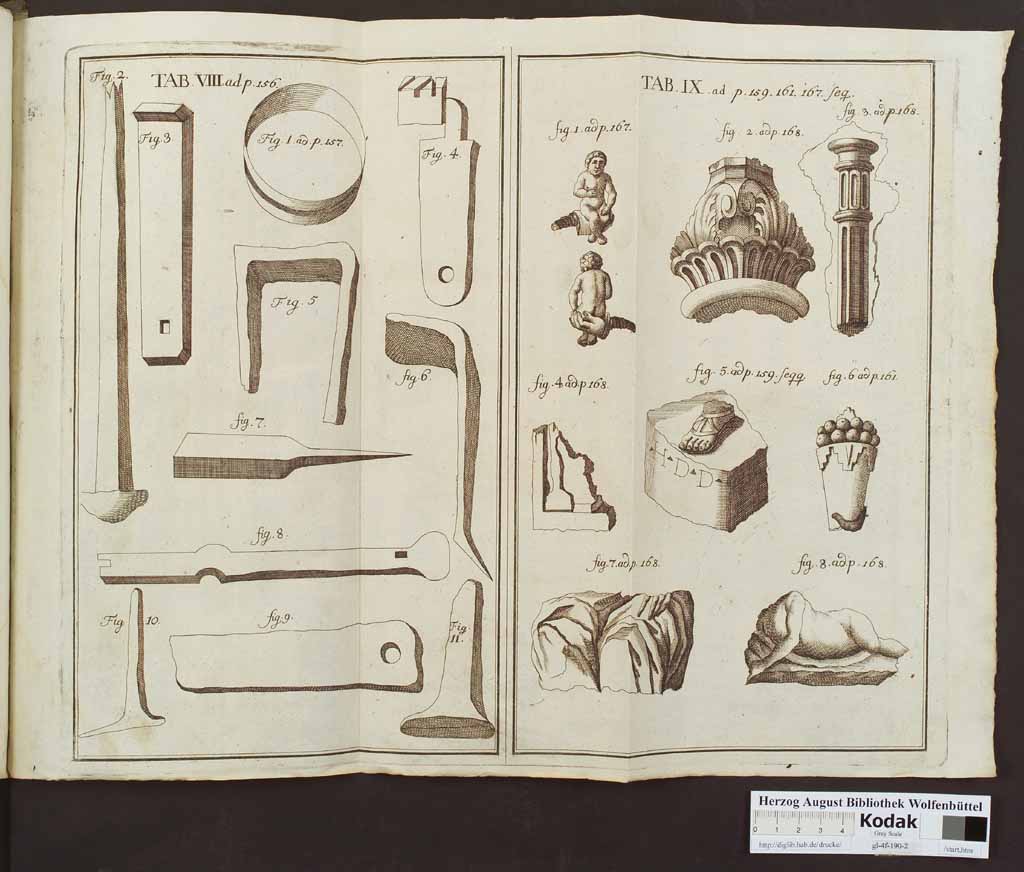 TAB. VIII. ad p. 156.
Fig. 2.
Fig. 3
Fig. 1. ad. p. 157.
Fig. 4.
Fig. 5
fig. 6.
fig. 7.
fig. 8.
Fig. 10.
fig. 9.
Fig. 11.
TAB. IX. ad p. 159. 161. 167. seq.
fig. 1. ad p. 167.
fig. 2. ad p. 168.
fig. 3. ad p. 168.
fig. 4 ad p. 168.
fig. 5. ad p. 159. seqq
fig. 6 ad p. 161.
H D D
fig. 7. ad p. 168.
fig. 8. ad p. 168.
Herzog August Bibliothek Wolfenbüttel
0 1 2 3 4
Kodak
Grey Scale
http://diglib.hab.de/drucke/
gl-4f-190-2
/start.htm